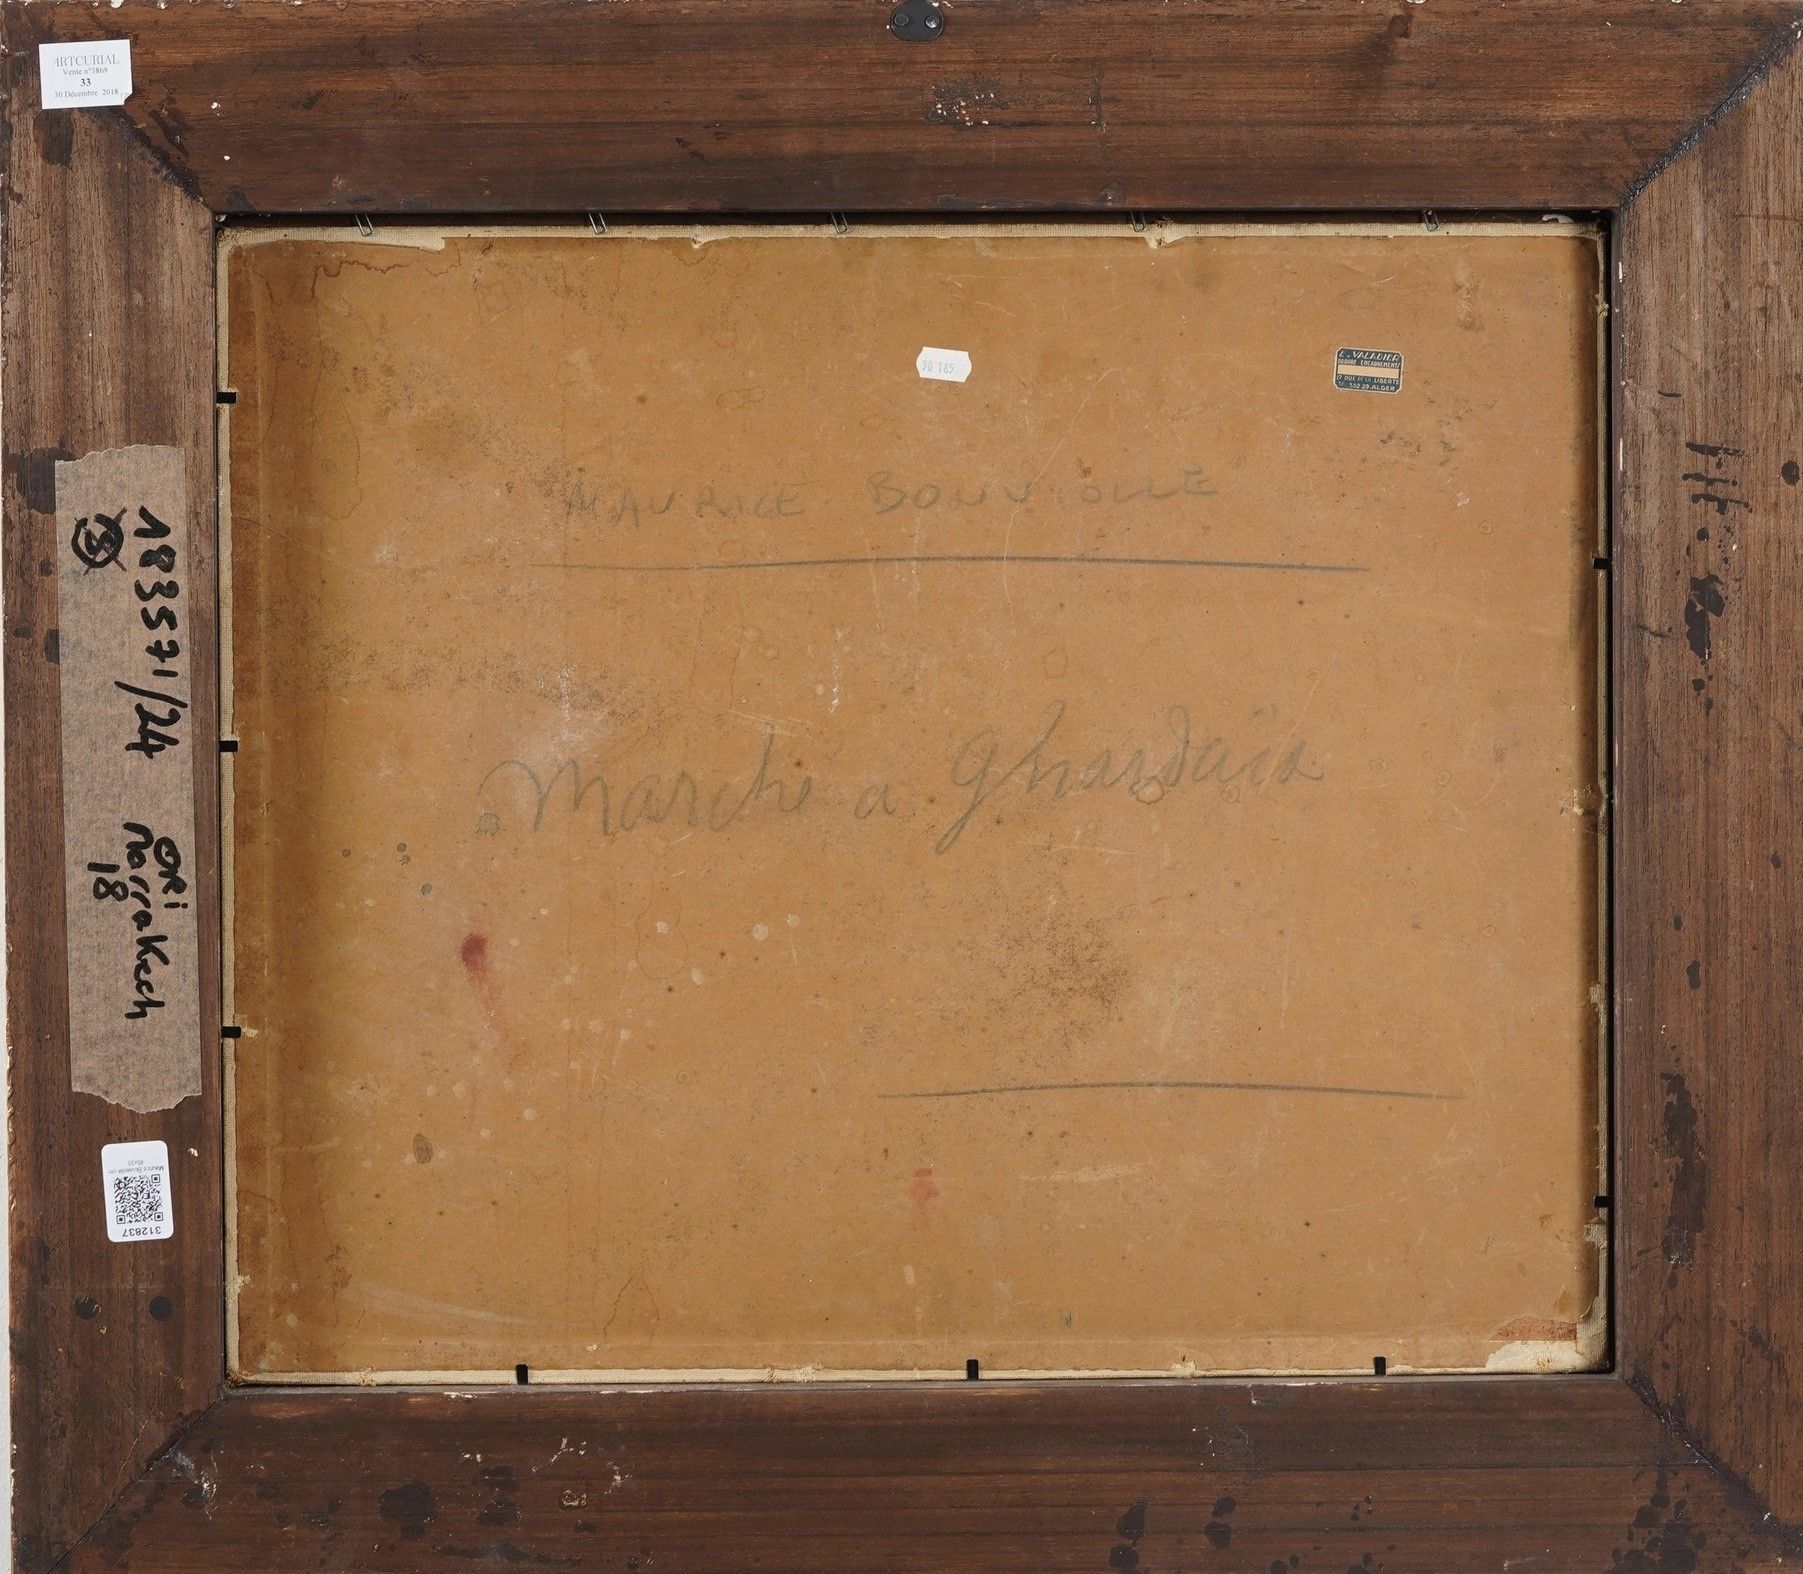 ARTCURIAL
Vente n°3869
33
30 Décembre 2018
90 185
L. VALADIER
DORURE ENCADREMENTS
17 RUE DE LA LIBERTÉ
TÉL: 332.29-ALGER
MAURICE BOUVIOLLE
Marché a Ghardaïa
183571/24 ORi
③ Marrakech
18
Maurice Bouviolle cm
312837